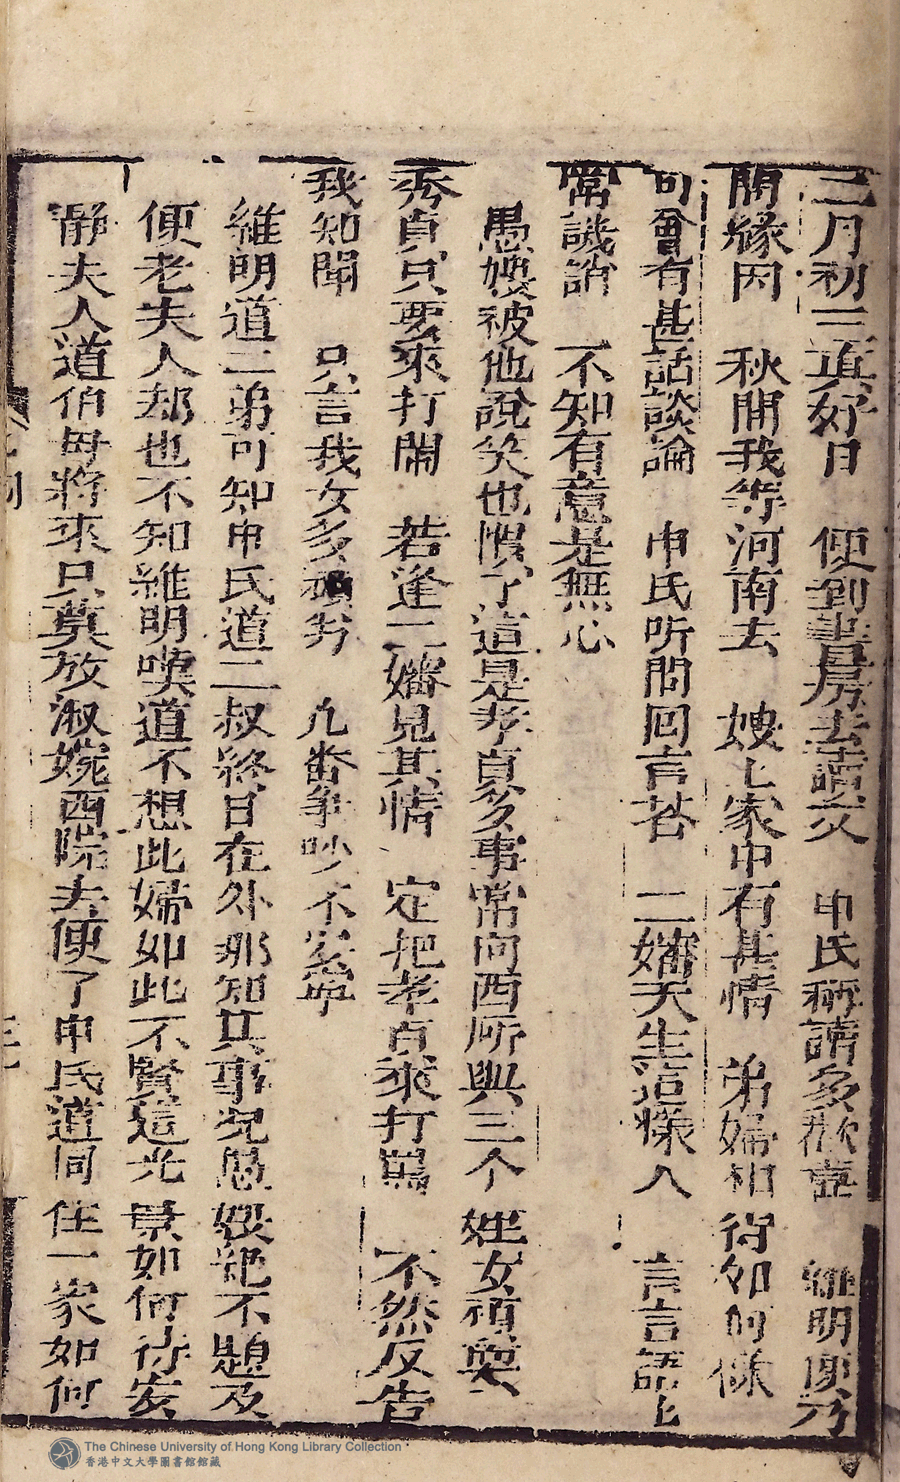 三月初三正好日 便到書房去請文 申氏稱謂多歡喜 維明開方
開緣因 秋間我等河南去 嫂上家中有甚情 弟婦相待如何樣
可曾有甚話談論 申氏听問回言荅 二嬸天生這樣人 言言語上
常譏誚 不知有意是無心
愚嫂被他說笑也慣了這是孝貞多事常向西所與三个姪女頑耍
秀貞只要來打鬧 若逢二嬸見其情 定把孝貞來打罵 不然反告
我知聞 只言我女多頑劣 几畨爭吵不安寧
維明道二弟可知申氏道二叔終日在外那知其事况愚嫂絕不題及
便老夫人却也不知維明嘆道不想此婦如此不賢這光景如何待妄
靜夫人道伯母將來只莫放淑婉西院去便了申氏道同住一家如何
The Chinese University of Hong Kong Library Collection
香港中文大學圖書館館藏